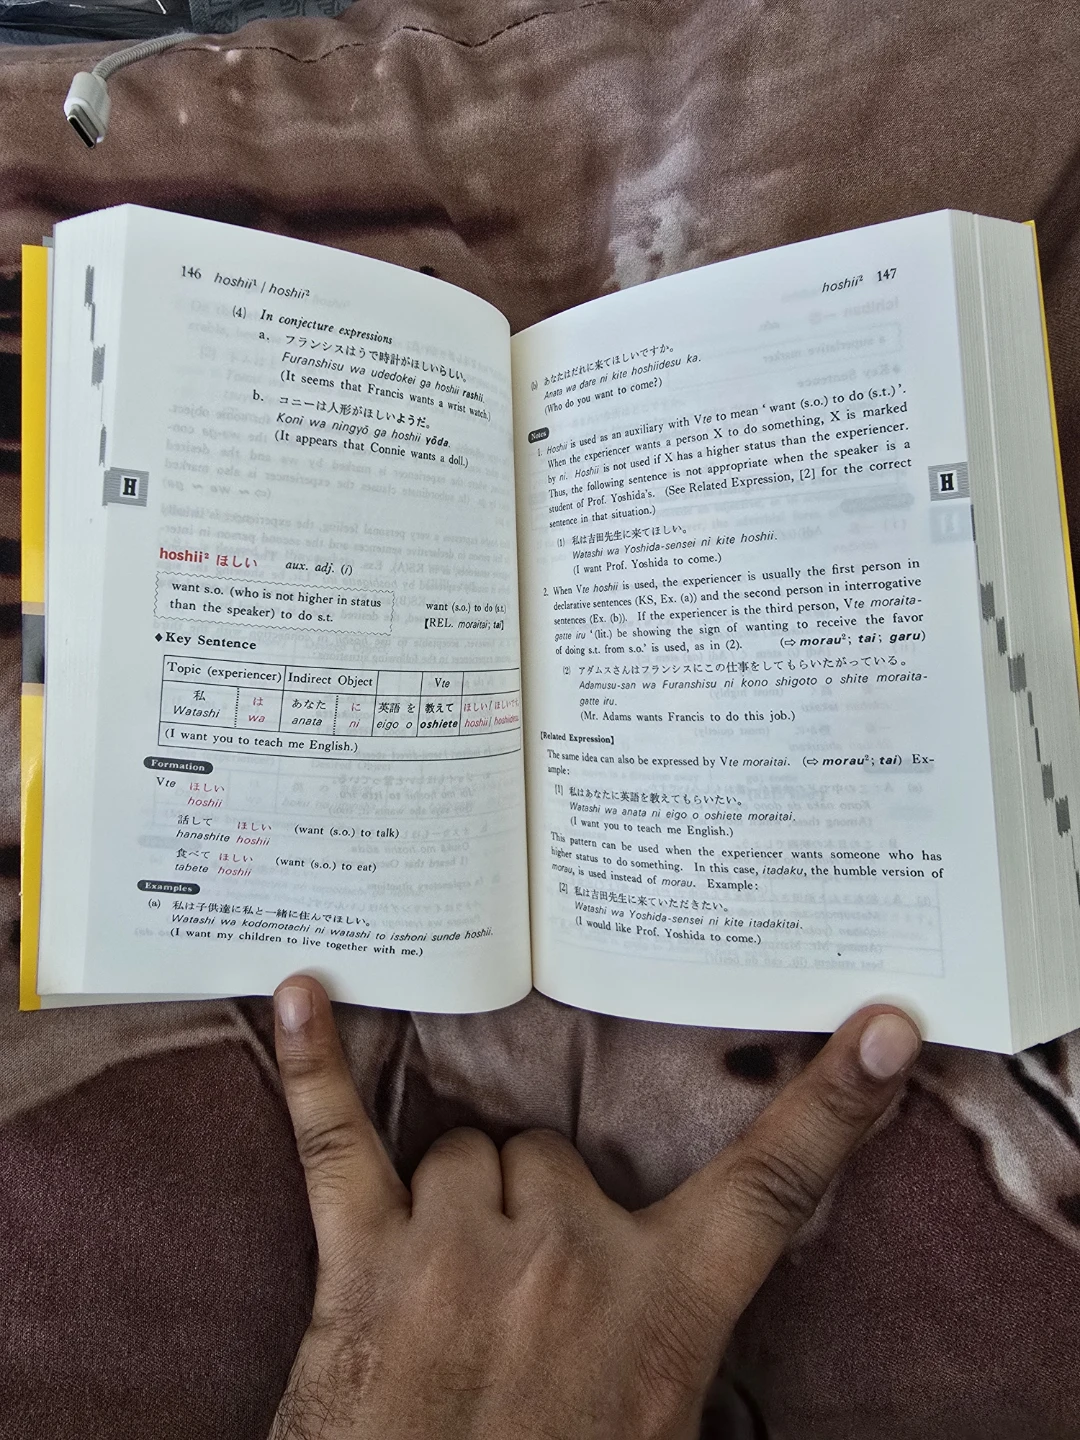 146 hoshii¹ / hoshii²
(4) In conjecture expressions
a. フランシスはうで時計がほしいらしい。
Furanshisu wa udedokei ga hoshii rashii.
(It seems that Francis wants a wrist watch.)
b. コニーは人形がほしいようだ。
Koni wa ningyō ga hoshii yōda.
(It appears that Connie wants a doll.)
H
hoshii² ほしい aux. adj. (i)
want s.o. (who is not higher in status
than the speaker) to do s.t.
want (s.o.) to do (s.t.)
【REL. moraitai; tai】
◆Key Sentence
Topic (experiencer) Indirect Object Vte
私 は あなた に 英語 を 教えて ほしい / ほしいです
Watashi wa anata ni eigo o oshiete hoshii / hoshiidesu
(I want you to teach me English.)
Formation
Vte ほしい
hoshii
話して ほしい (want (s.o.) to talk)
hanashite hoshii
食べて ほしい (want (s.o.) to eat)
tabete hoshii
Examples
(a) 私は子供達に私と一緒に住んでほしい。
Watashi wa kodomotachi ni watashi to isshoni sunde hoshii.
(I want my children to live together with me.)
hoshii² 147
(b) あなたはだれに来てほしいですか。
Anata wa dare ni kite hoshiidesu ka.
(Who do you want to come?)
Notes
1. Hoshii is used as an auxiliary with Vte to mean ‘ want (s.o.) to do (s.t.) ’.
When the experiencer wants a person X to do something, X is marked
by ni. Hoshii is not used if X has a higher status than the experiencer.
Thus, the following sentence is not appropriate when the speaker is a
student of Prof. Yoshida's. (See Related Expression, [2] for the correct
sentence in that situation.)
(1) 私は吉田先生に来てほしい。
Watashi wa Yoshida-sensei ni kite hoshii.
(I want Prof. Yoshida to come.)
H
2. When Vte hoshii is used, the experiencer is usually the first person in
declarative sentences (KS, Ex. (a)) and the second person in interrogative
sentences (Ex. (b)). If the experiencer is the third person, Vte moraita-
gatte iru ‘ (lit.) be showing the sign of wanting to receive the favor
of doing s.t. from s.o.’ is used, as in (2). (⇨ morau²; tai; garu)
(2) アダムスさんはフランシスにこの仕事をしてもらいたがっている。
Adamusu-san wa Furanshisu ni kono shigoto o shite moraita-
gatte iru.
(Mr. Adams wants Francis to do this job.)
【Related Expression】
The same idea can also be expressed by Vte moraitai. (⇨ morau²; tai) Ex-
ample:
[1] 私はあなたに英語を教えてもらいたい。
Watashi wa anata ni eigo o oshiete moraitai.
(I want you to teach me English.)
This pattern can be used when the experiencer wants someone who has
higher status to do something. In this case, itadaku, the humble version of
morau, is used instead of morau. Example:
[2] 私は吉田先生に来ていただきたい。
Watashi wa Yoshida-sensei ni kite itadakitai.
(I would like Prof. Yoshida to come.)